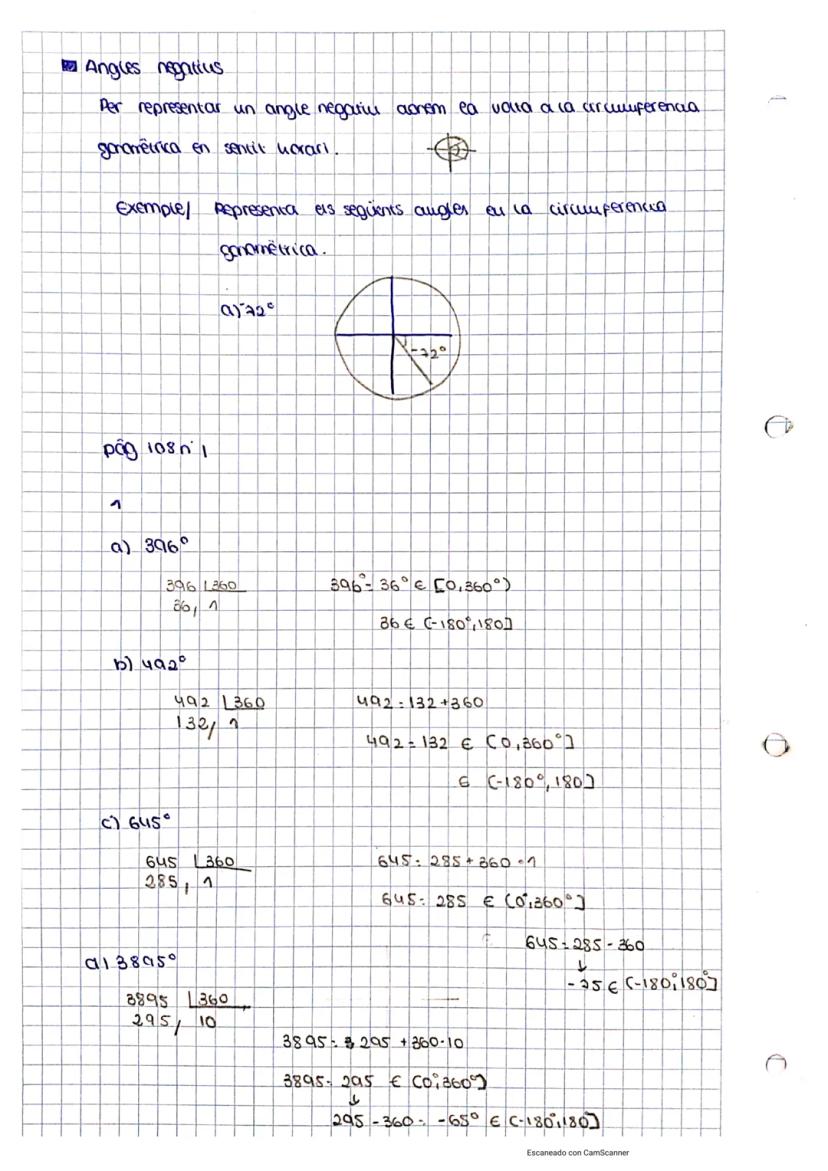 Angles negatius
Per representar un angle negatiu donem la volta a la circumferencia
goniomètrica en sentit horari.
Exemple/ Representa els següents angles en la circumferencia
goniomètrica.
a) -72°
-72°
pág 108 nº 1
1
a) 396°
396 360
36, 1
396° = 36° ∈ [0, 360°)
36 ∈ (-180°, 180]
b) 492°
492 360
132, 1
492 = 132 + 360
492 = 132 ∈ (0, 360°]
∈ (-180°, 180]
c) 645°
645 360
285, 1
645 = 285 + 360 · 1
645 = 285 ∈ (0°, 360°]
645 = 285 - 360
↓
-75 ∈ (-180°, 180°]
d) 3895°
3895 360
295, 10
3895 = 295 + 360 · 10
3895 = 295 ∈ (0°, 360°)
↓
295 - 360 = -65° ∈ (-180°, 180]
Escaneado con CamScanner